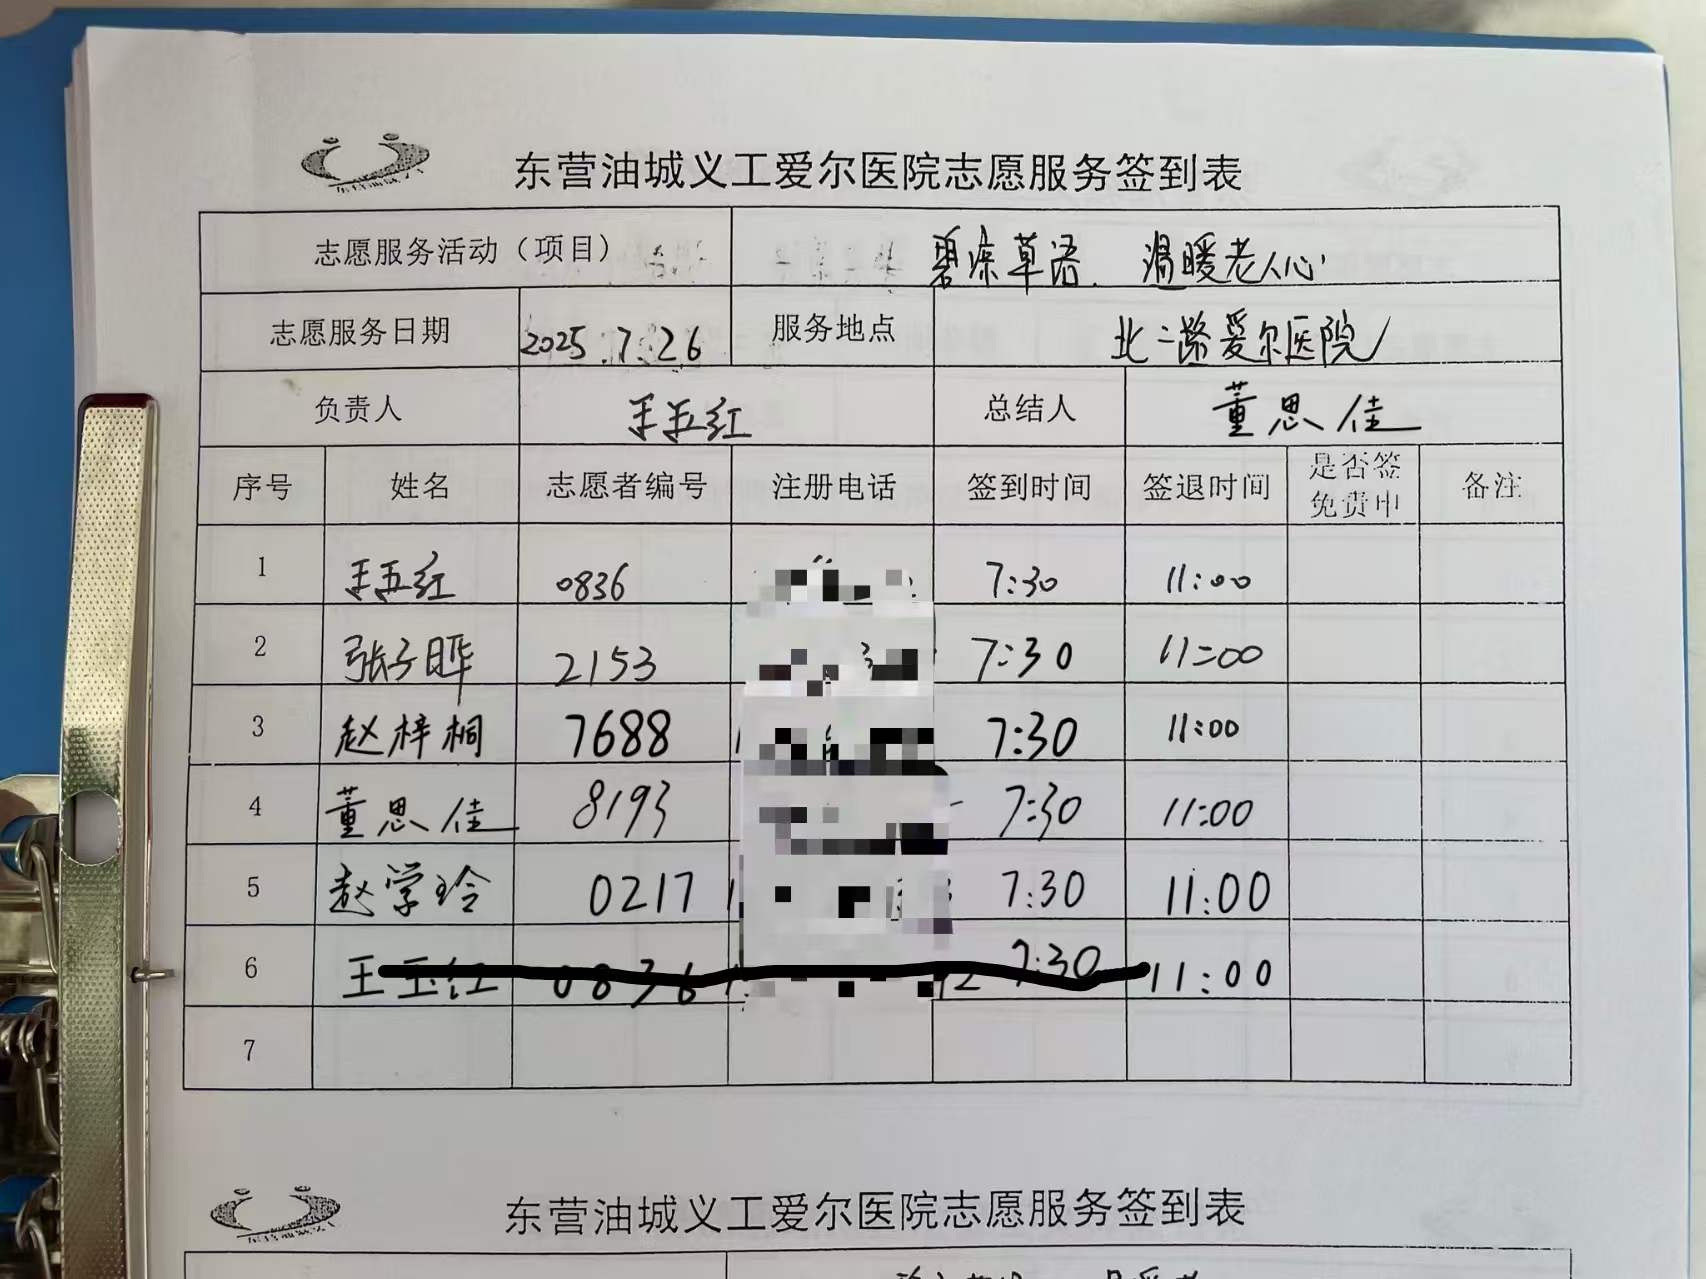 东营油城义工爱尔医院志愿服务签到表
志愿服务活动（项目） 碧凉草语、温暖老人心
志愿服务日期 2025.7.26 服务地点 北二路爱尔医院
负责人 王玉红 总结人 董思佳
序号 姓名 志愿者编号 注册电话 签到时间 签退时间 是否签免责申 备注
1 王玉红 0836 7:30 11:00
2 张子晔 2153 7:30 11:00
3 赵梓桐 7688 7:30 11:00
4 董思佳 8193 7:30 11:00
5 赵学玲 0217 7:30 11:00
6 王玉红 0836 7:30 11:00
7
东营油城义工爱尔医院志愿服务签到表